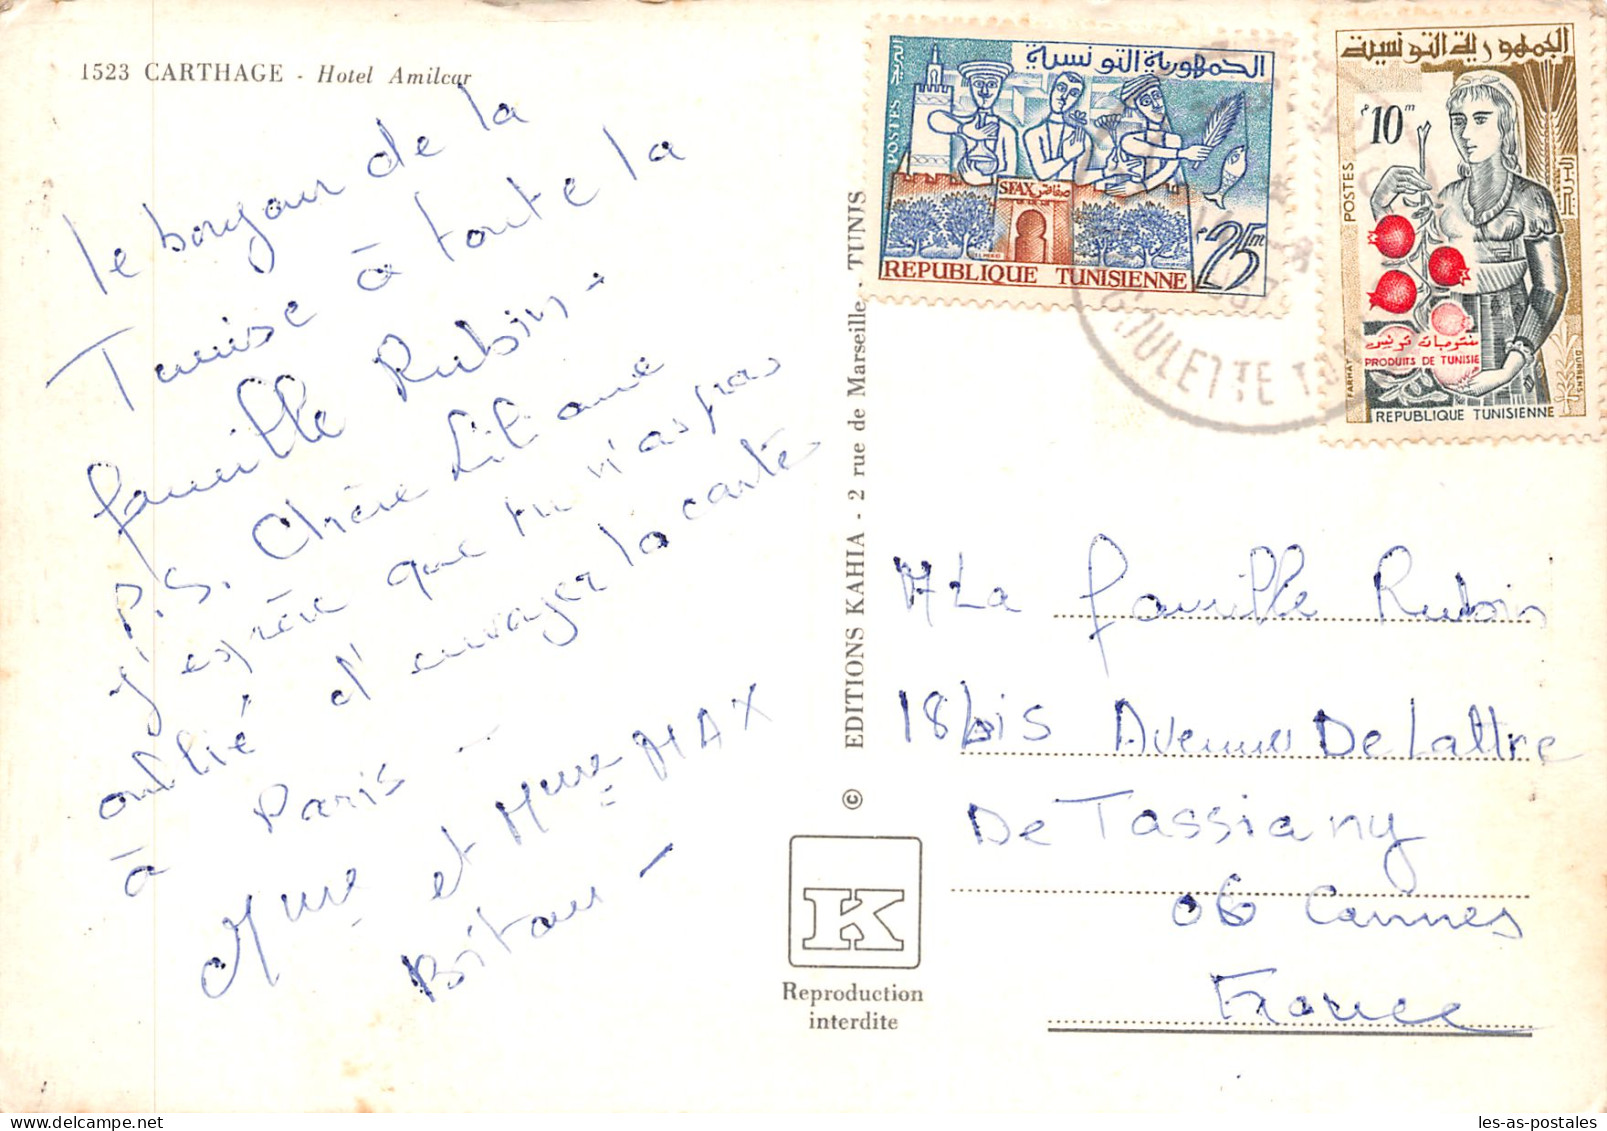 1523 CARTHAGE - Hotel Amilcar
le bonjour de la
Tunise à toute la
famille Rubin -
P.S. Chère Liliane
j'espère que tu n'as pas
oublié d'envoyer la carte
à Paris -
Mme et Mme MAX
Bitan -
EDITIONS KAHIA - 2 rue de Marseille - TUNIS
©
K
Reproduction
interdite
الجمهورية التونسية
POSTES
البريد
SFAX صفاقس
25m
REPUBLIQUE TUNISIENNE
الجمهورية التونسية
10m
POSTES
البريد
منتوجات تونس
PRODUITS DE TUNISIE
FARHAT
DURRENS
REPUBLIQUE TUNISIENNE
GOULETTE
A La famille Rubin
18 bis Avenue De Lattre
De Tassiany
06 Cannes
France
les-as-postales